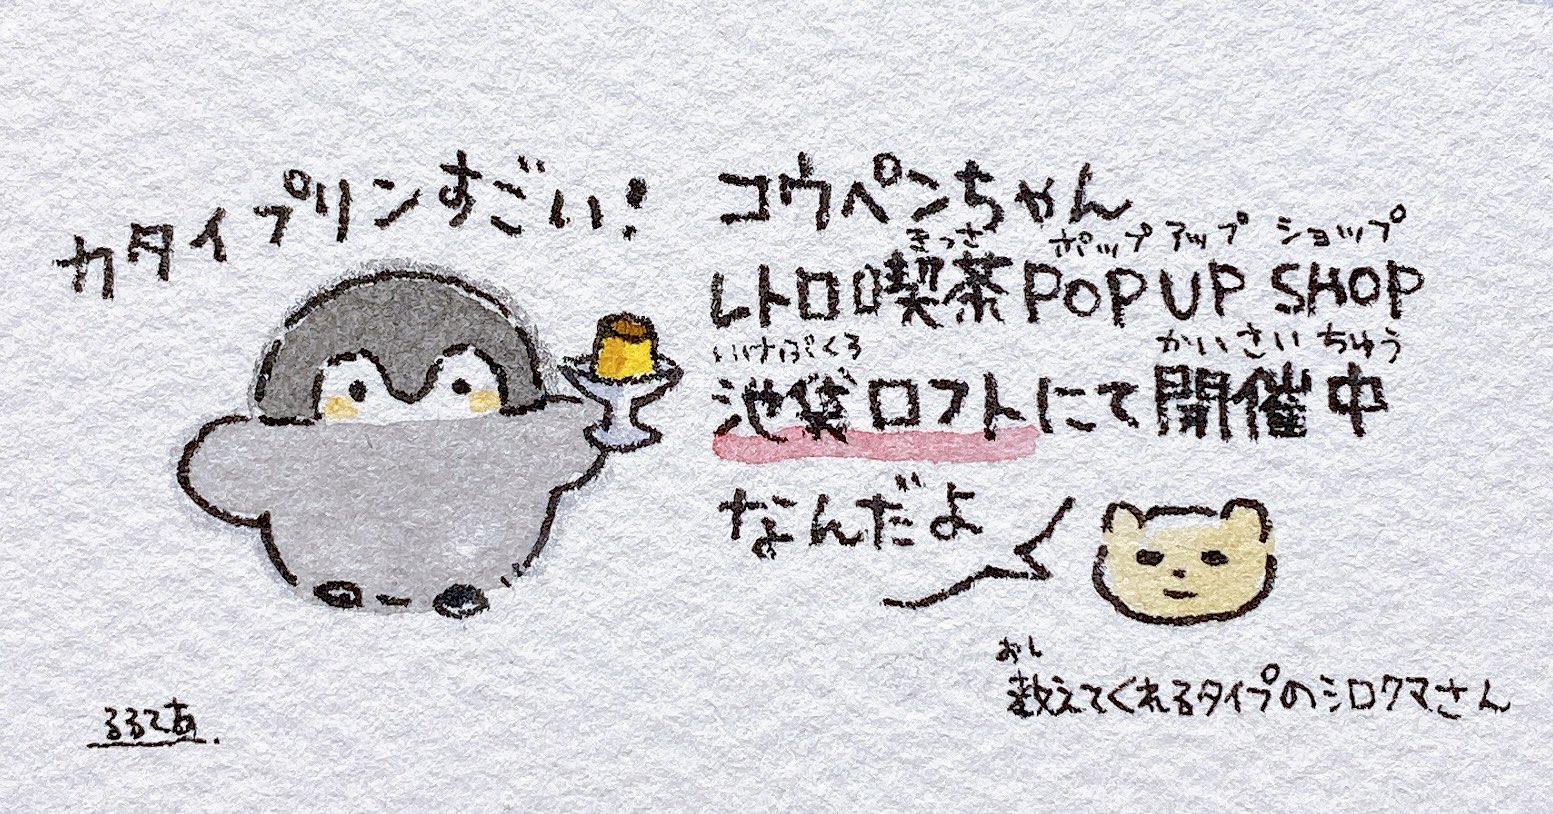 カタイプリンすごい!
コウペンちゃん
きっさ ポップ アップ ショップ
レトロ喫茶POP UP SHOP
いけぶくろ かいさいちゅう
池袋ロフトにて開催中
なんだよ
おし
教えてくれるタイプのシロクマさん
るるてあ.